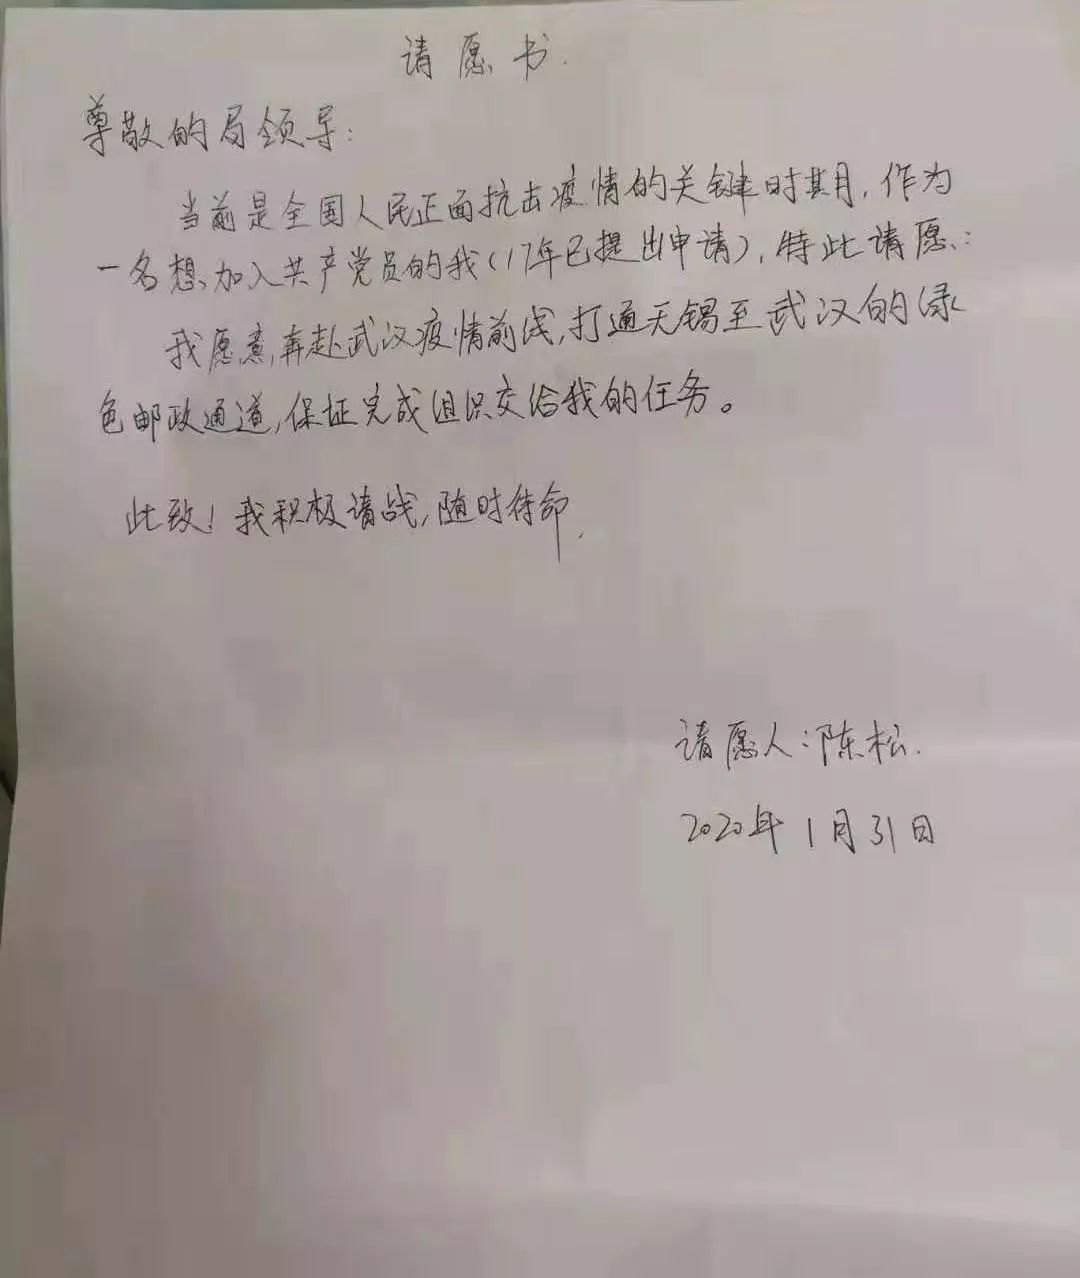 请愿书.
尊敬的局领导:
当前是全国人民正面抗击疫情的关键时期,作为
一名想加入共产党员的我(17年已提出申请),特此请愿:
我愿意奔赴武汉疫情前线,打通无锡至武汉的绿
色邮政通道,保证完成组织交给我的任务。
此致!我积极请战,随时待命.
请愿人:陈松.
2020年1月31日